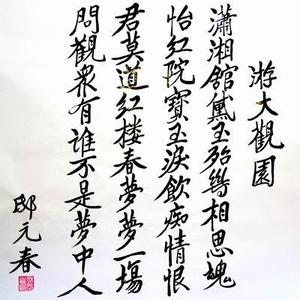 游大觀園
瀟湘館黛玉殆幾相思魂
怡紅院寶玉淚飲痴情恨
君莫道紅楼春夢夢一場
問觀衆有誰不是夢中人
邸元春